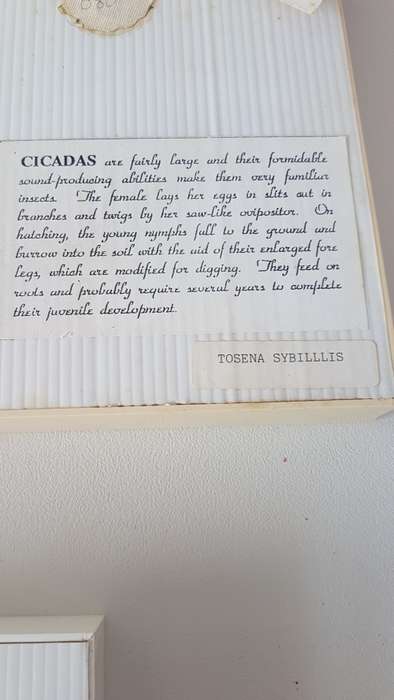 CICADAS are fairly large and their formidable
sound-producing abilities make them very familiar
insects. The female lays her eggs in slits cut in
branches and twigs by her saw-like ovipositor. On
hatching, the young nymphs fall to the ground and
burrow into the soil with the aid of their enlarged fore
legs, which are modified for digging. They feed on
roots and probably require several years to complete
their juvenile development.
TOSENA SYBILLLIS